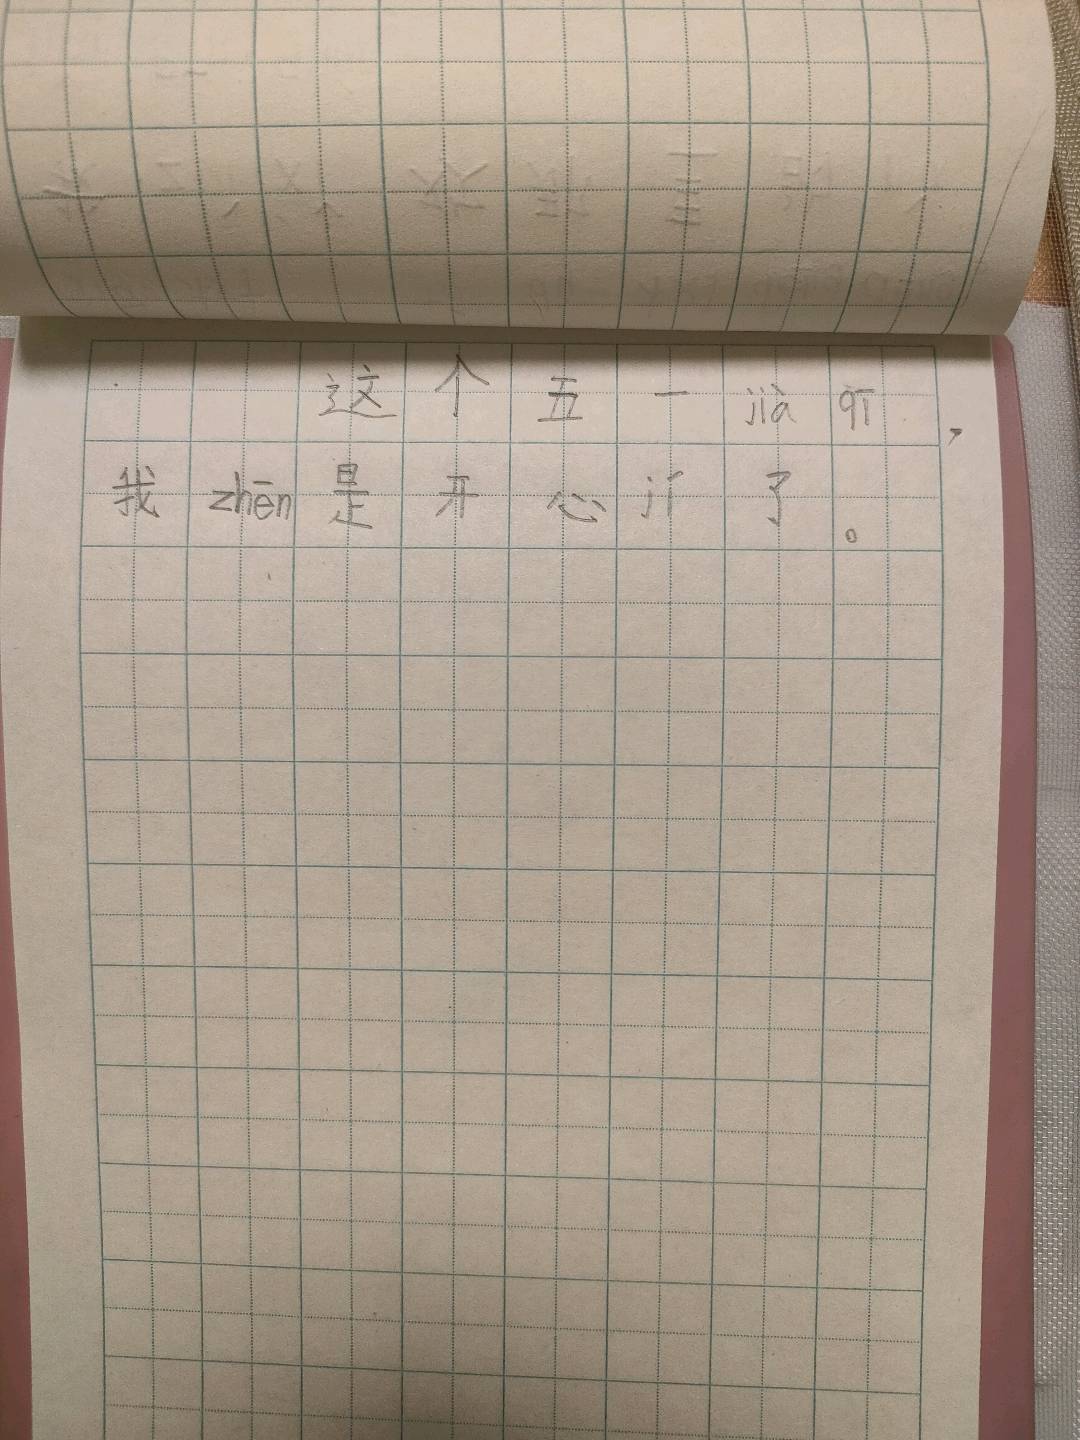 这个五一jià qī，
我zhēn是开心jí了。